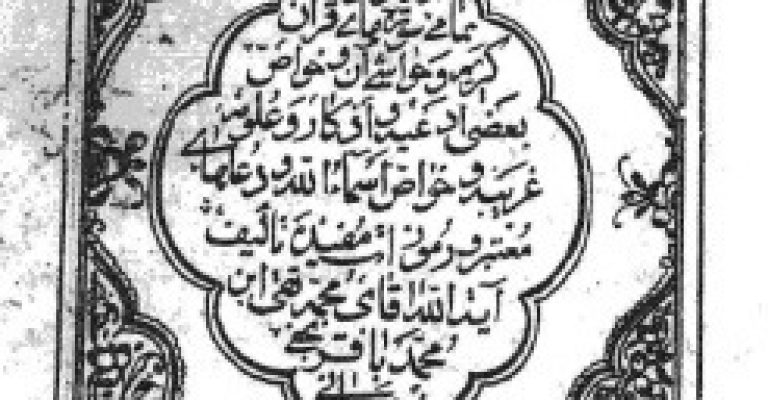 تمامے سورتهاے قرآن
کریم و خواصے آن و خواصّ
بعضى ادعیه و اذکار و علوم
غریبه و خواص اسماء الله و دعاهاے
معتبر و رموزات مفیده تألیف
آیة الله آقاى محمد تقى ابن
محمد باقر نجفے